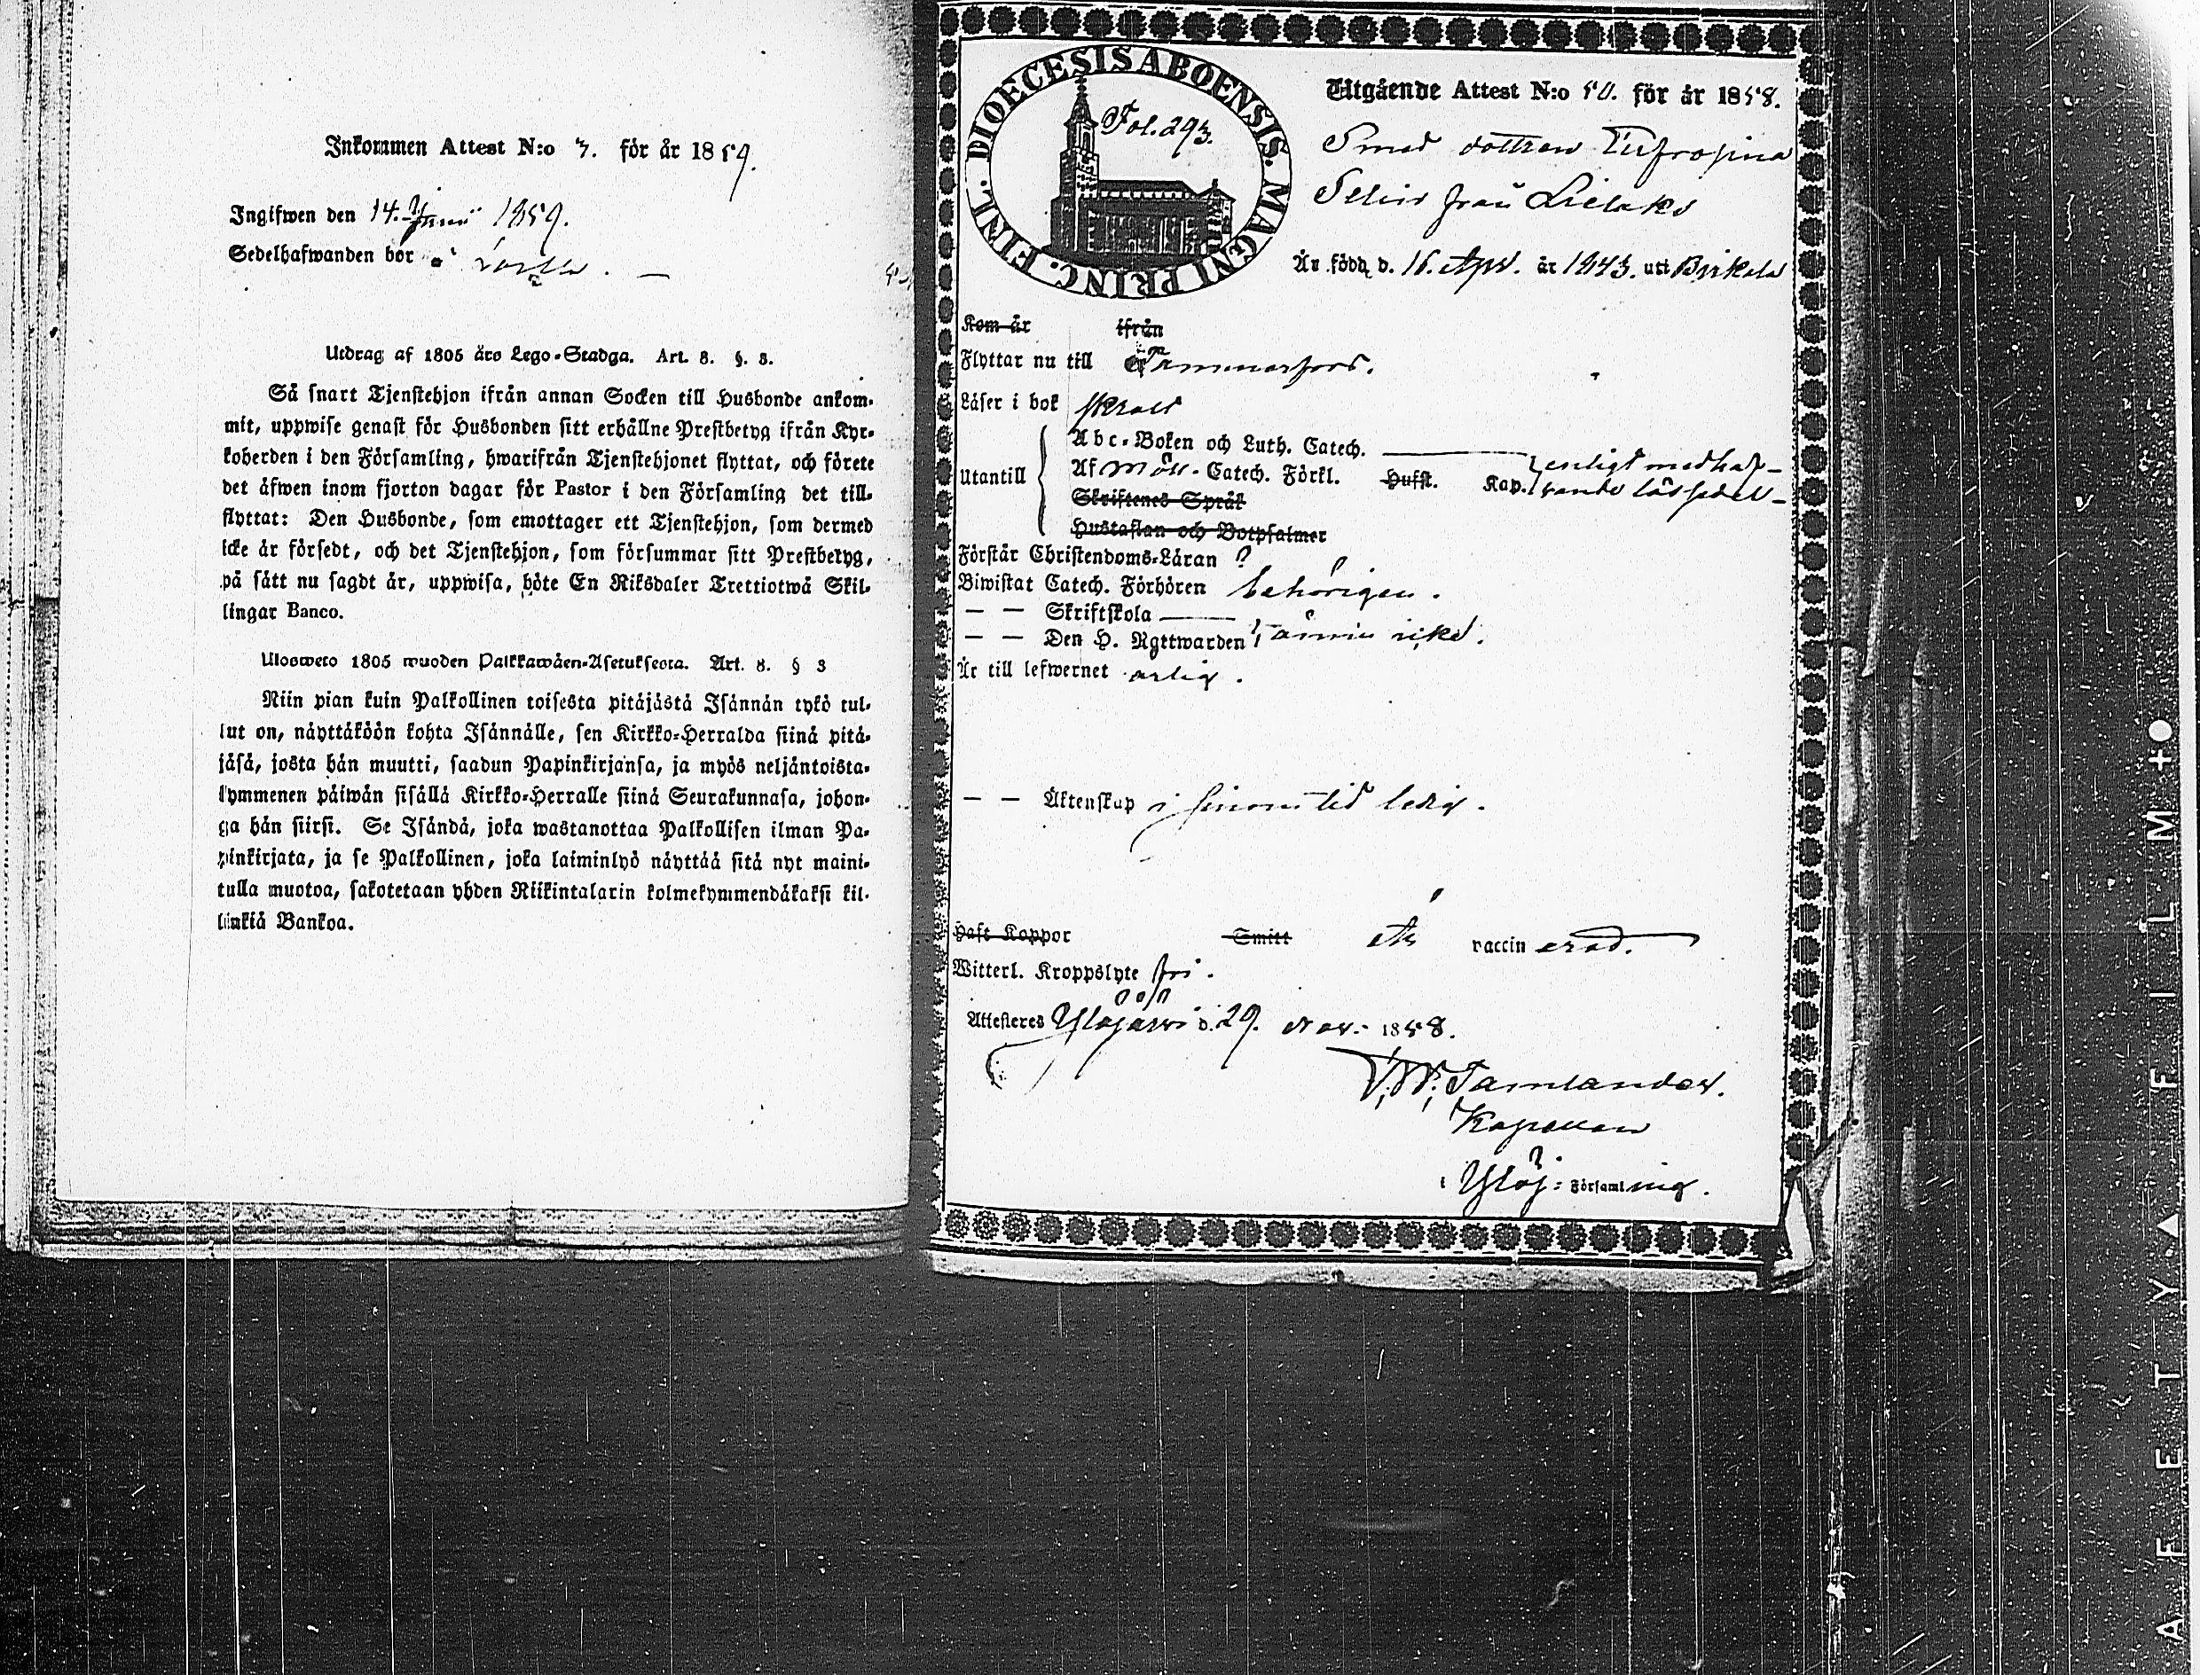 Inkommen Attest N:o 7. för år 1859.
Ingifwen den 14. Junii 1859.
Sedelhafwanden bor
Utdrag af 1805 års Lego-Stadga. Art. 8. §. 3.
Så snart Tjenstehjon ifrån annan Socken till Husbonde ankom-
mit, uppwise genast för Husbonden sitt erhållne Prestbetyg ifrån Kyr-
koherden i den Församling, hwarifrån Tjenstehjonet flyttat, och förete
det äfwen inom fjorton dagar för Pastor i den Församling det till-
flyttat: Den Husbonde, som emottager ett Tjenstehjon, som dermed
icke är försedt, och det Tjenstehjon, som försummar sitt Prestbetyg,
på sätt nu sagdt är, uppwisa, böte En Riksdaler Trettiotwå Skil-
lingar Banco.
Ulosweto 1805 wuoden Palkkawäen-Asetuksesta. Art. 8. § 3
Niin pian kuin Palkollinen toisesta pitäjästä Isännän tykö tul-
lut on, näyttäköön kohta Isännälle, sen Kirkko-Herralda siinä pitä-
jäsä, josta hän muutti, saadun Papinkirjansa, ja myös neljäntoista-
kymmenen päiwän sisällä Kirkko-Herralle siinä Seurakunnasa, johon-
ga hän siirsi. Se Isändä, joka wastanottaa Palkollisen ilman Pa-
pinkirjata, ja se Palkollinen, joka laiminlyö näyttää sitä nyt maini-
tulla muotoa, sakotetaan yhden Riikintalarin kolmekymmendäkaksi kil-
linkiä Bankoa.
DIOECESIS ABOENSIS. MAGNI PRINC. FINL.
Fol. 293.
Utgående Attest N:o 50. för år 1858.
Smed dottren Eufrosina
från Lielaks
Är född d. 16. Apr. år 1843. uti Birkala
Kom år ifrån
Flyttar nu till Tammerfors.
Läser i bok
Utantill
Abc-Boken och Luth. Catech.
Af Möll. Catech. Förkl. Hufst. Kap.
enligt medhaf-
vande läs sedel
Skriftenes Språk
Hustaflan och Botpsalmer
Förstår Christendoms-Läran ?
Biwistat Catech. Förhören behörigen.
— — Skriftskola
— — Den H. Nattwarden ännu icke.
Är till lefwernet ärlig.
— — Äktenskap i sinom tid ledig.
Haft Koppor Smitt Är vaccinerad.
Witterl. Kroppslyte fri.
Attesteres Ylöjärvi d. 29. Nov. 1858.
Kapellan
i Ylöj: Församlning.
SAFETY ▲ FILM